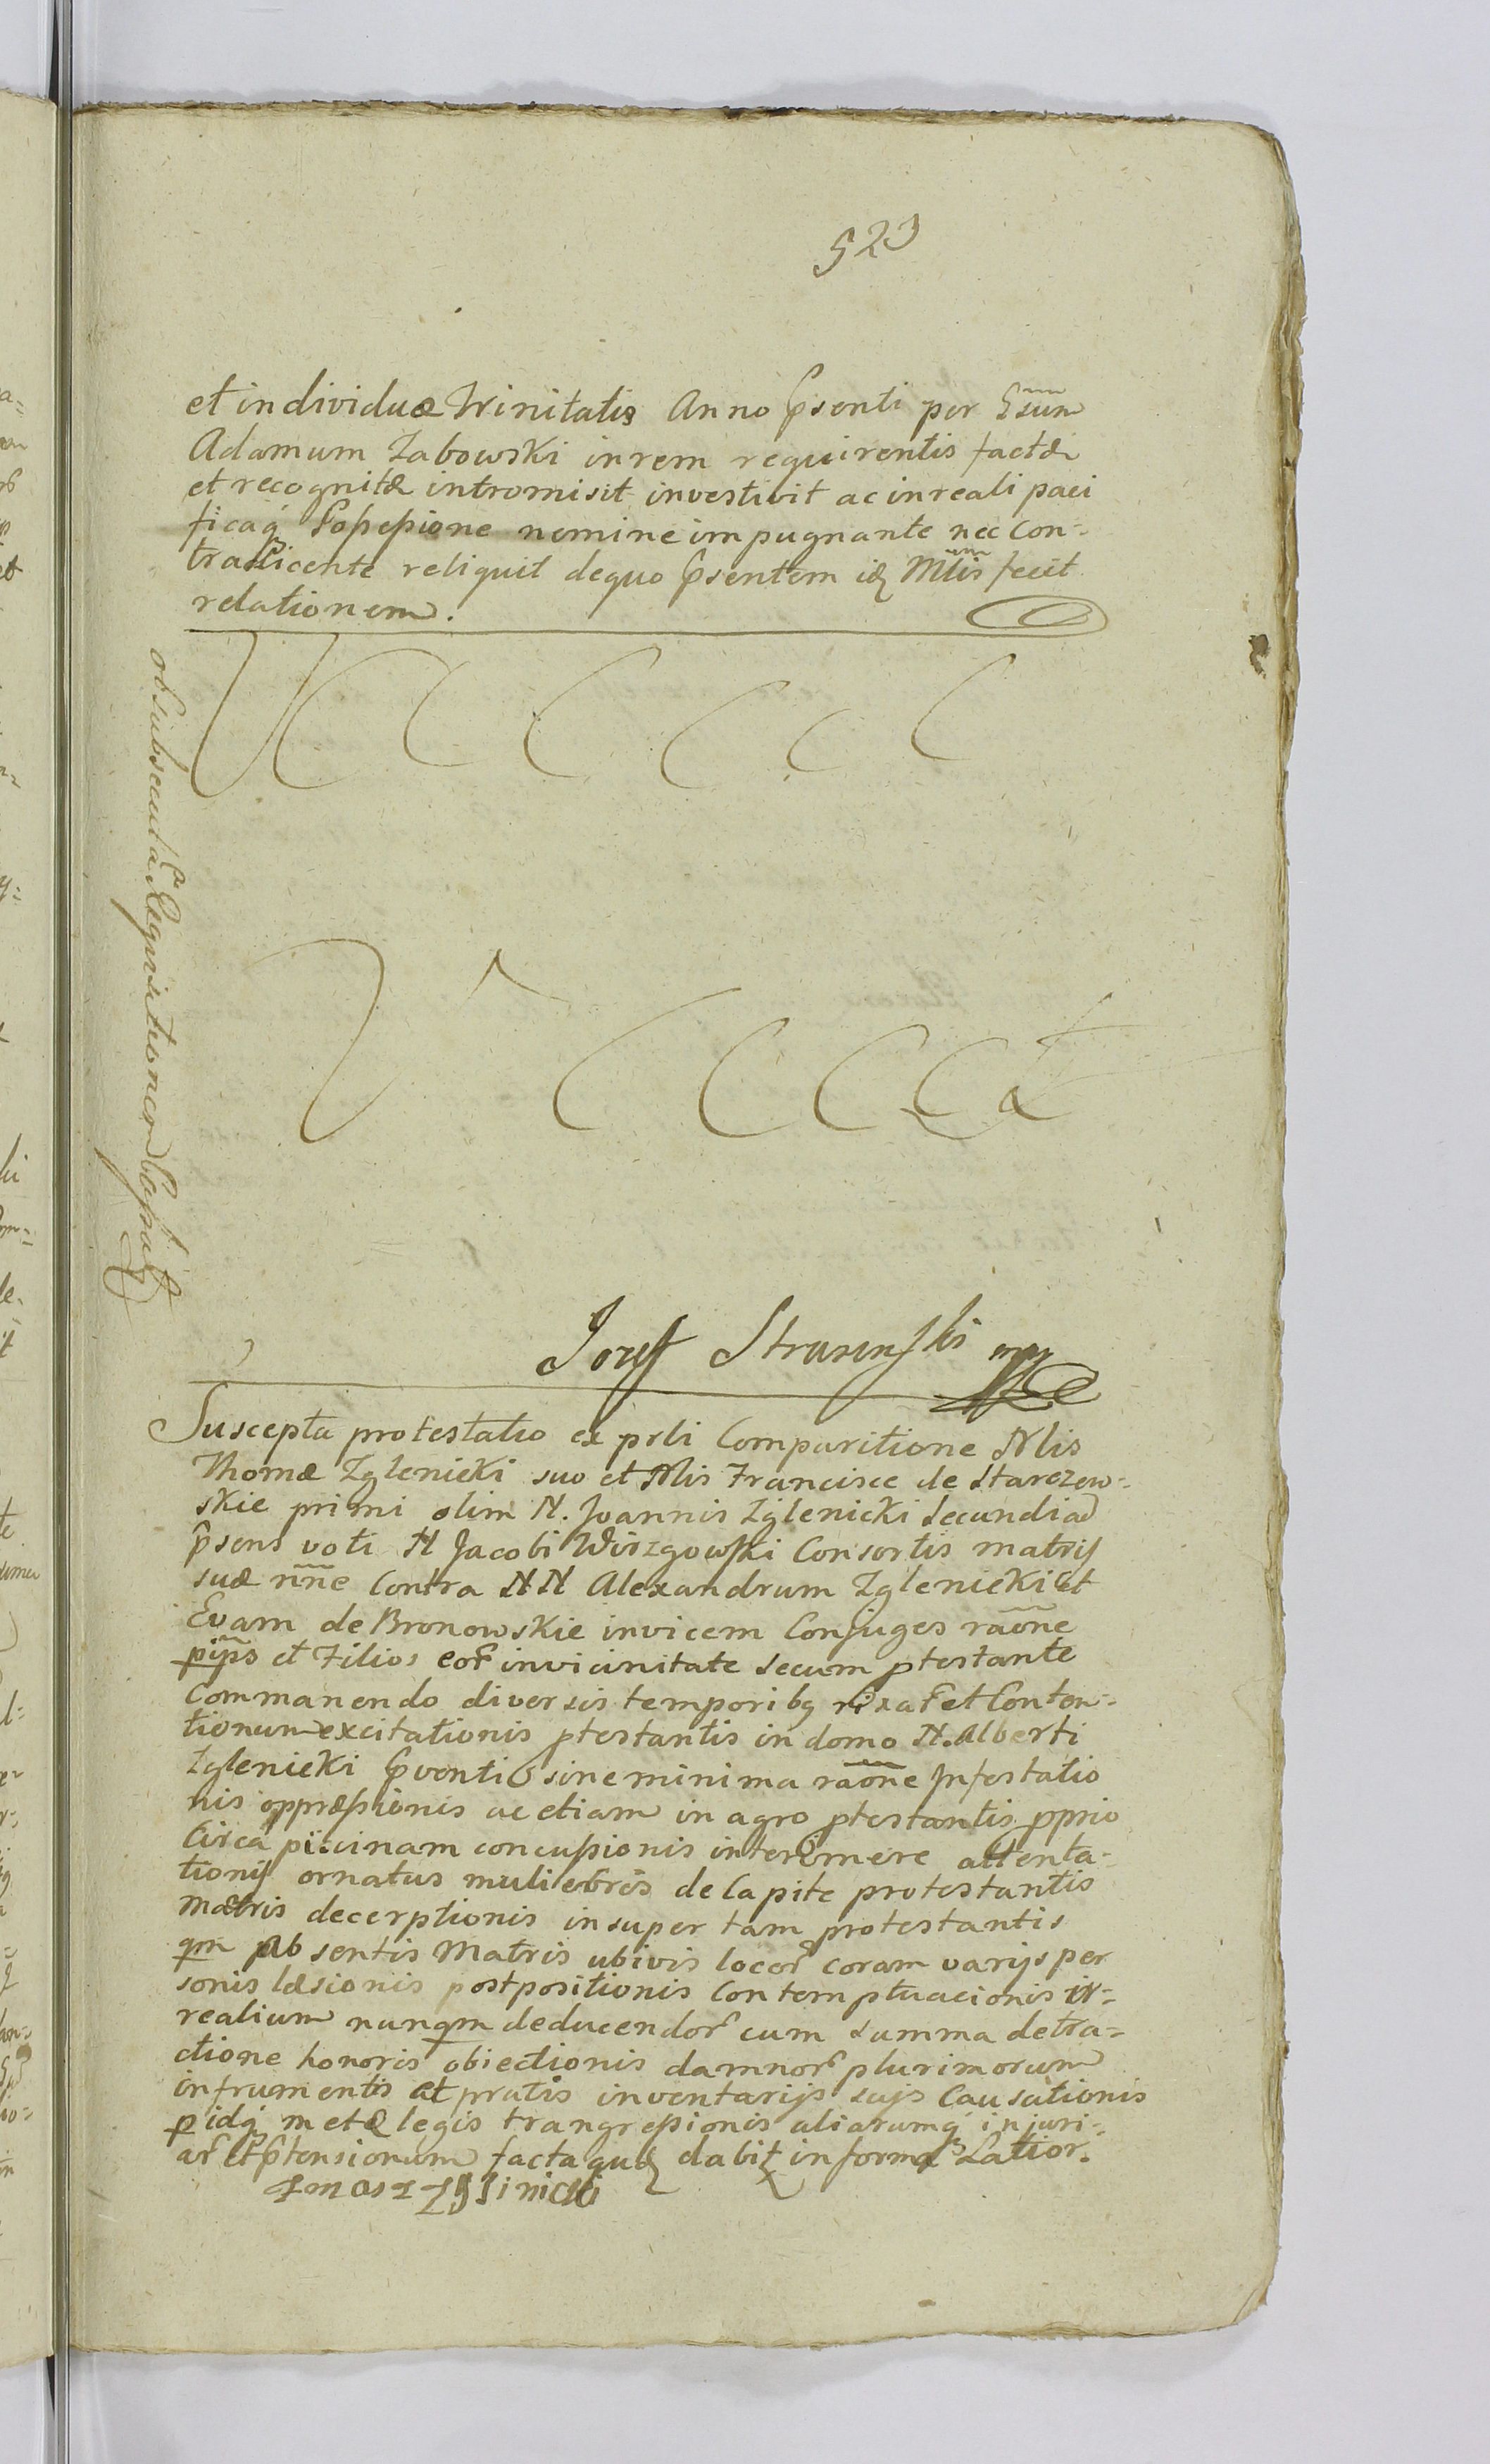 523
et individuæ Trinitatis Anno Psenti per Gsum
Adamum Zabowski in rem requirentis factæ
et recognitæ intromisit investivit ac in reali paci
ficaq Possessione nemine impugnante nec Con=
tradicente reliquit de quo Psentem idq Mtis fecit
relationem.
ob subsecutã Requisitionem Cassat
Jozef Strusinski mp
Suscepta protestatio ex prli Comparitione Nlis
Thomæ Zglenicki suo et Nlis Francisce de Starczew=
skie primi olim N. Joannis Zglenicki Secundi ad
psens voti N Jacobi Wirzgowski Consortis matris
suæ nñe Contra NN Alexandrum Zglenicki et
Evam de Bronowskie invicem Conjuges raõne
et Filios eor in vicinitate secum ptestante
Commanendo diversis temporibq rixar et Conten=
tionum excitationis ptestantis in domo N. Alberti
Zglenicki Pventi sine minima raõne Infestatio
nis oppræssionis ac etiam in agro ptestantis pprio
Circa piscinam concussionis interimere attenta=
tionis ornatus muliebris de Capite protestantis
Matris decerptionis in super tam protestantis
qm Absentis Matris ubivis locor coram varijs per
sonis læsionis postpositionis Contemptuacionis ir=
realium nunqm deducendor cum summa detra=
ctione honoris obiectionis damnor plurimorum
in frumentis et pratis inventarijs suis Causationis
p idq metæ legis trangressionis aliarumq injuri=
ar et Ptensionum facta quæ dabit in forma Latior.